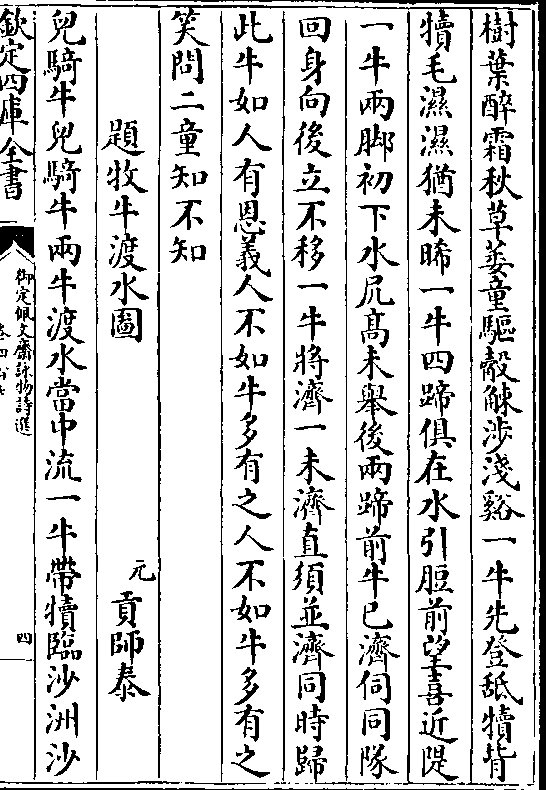 樹葉醉霜秋草萎童驅觳觫涉淺谿一牛先登舐犢背
犢毛濕濕猶未晞一牛四蹄俱在水引脰前望喜近隄
一牛兩脚初下水尻髙未舉後兩蹄前牛已濟伺同隊
回身向後立不移一牛將濟一未濟直須並濟同時歸
此牛如人有恩義人不如牛多有之人不如牛多有之
笑問二童知不知
題牧牛渡水圖
元 貢師泰
兒騎牛兒騎牛兩牛渡水當中流一牛帶犢臨沙洲沙
欽定四庫全書
御定佩文齋詠物詩選
四